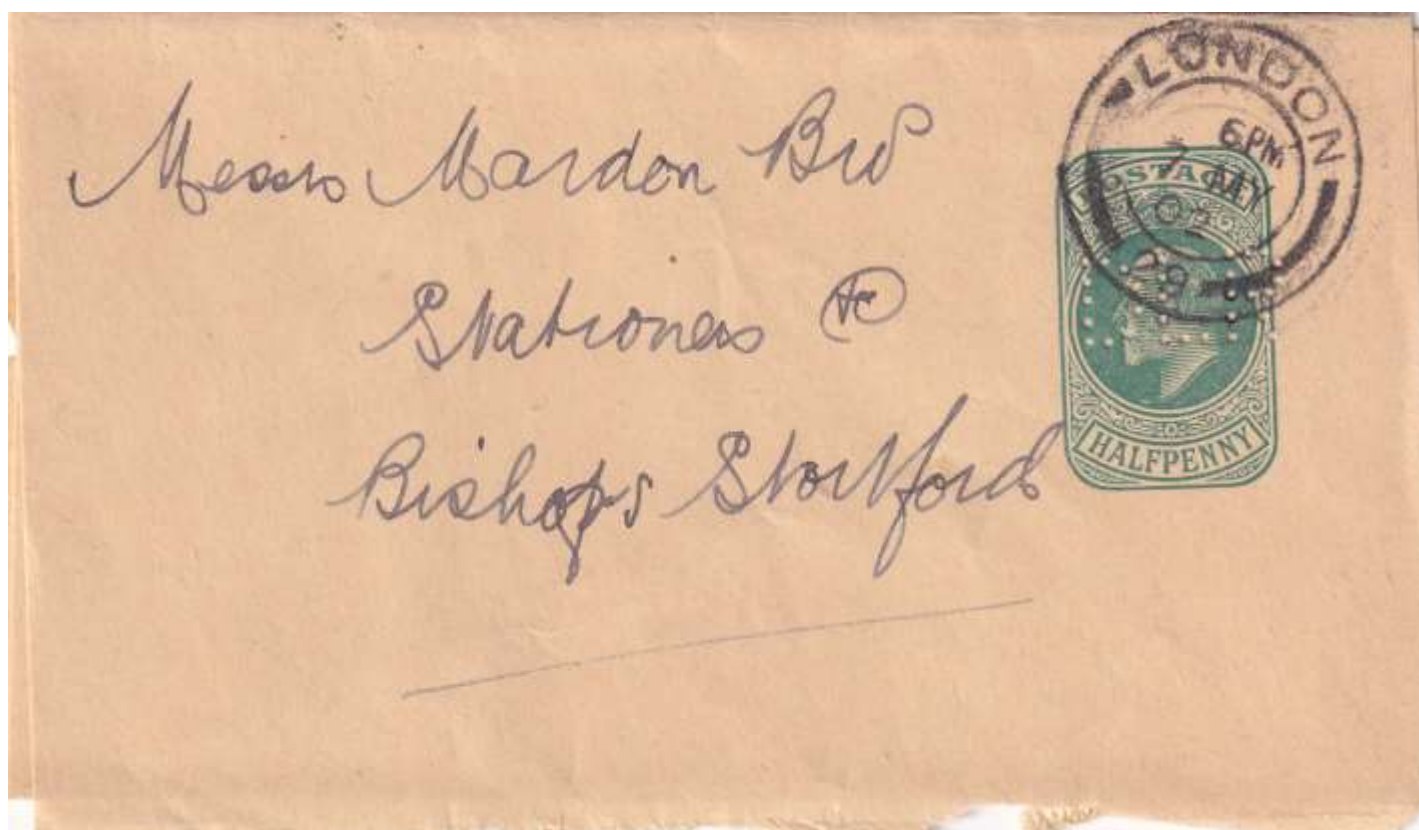 Messrs Mardon Bros
Stationers &c
Bishops Stortford
LONDON
6PM
7 MY
02
29
POSTAGE
HALFPENNY